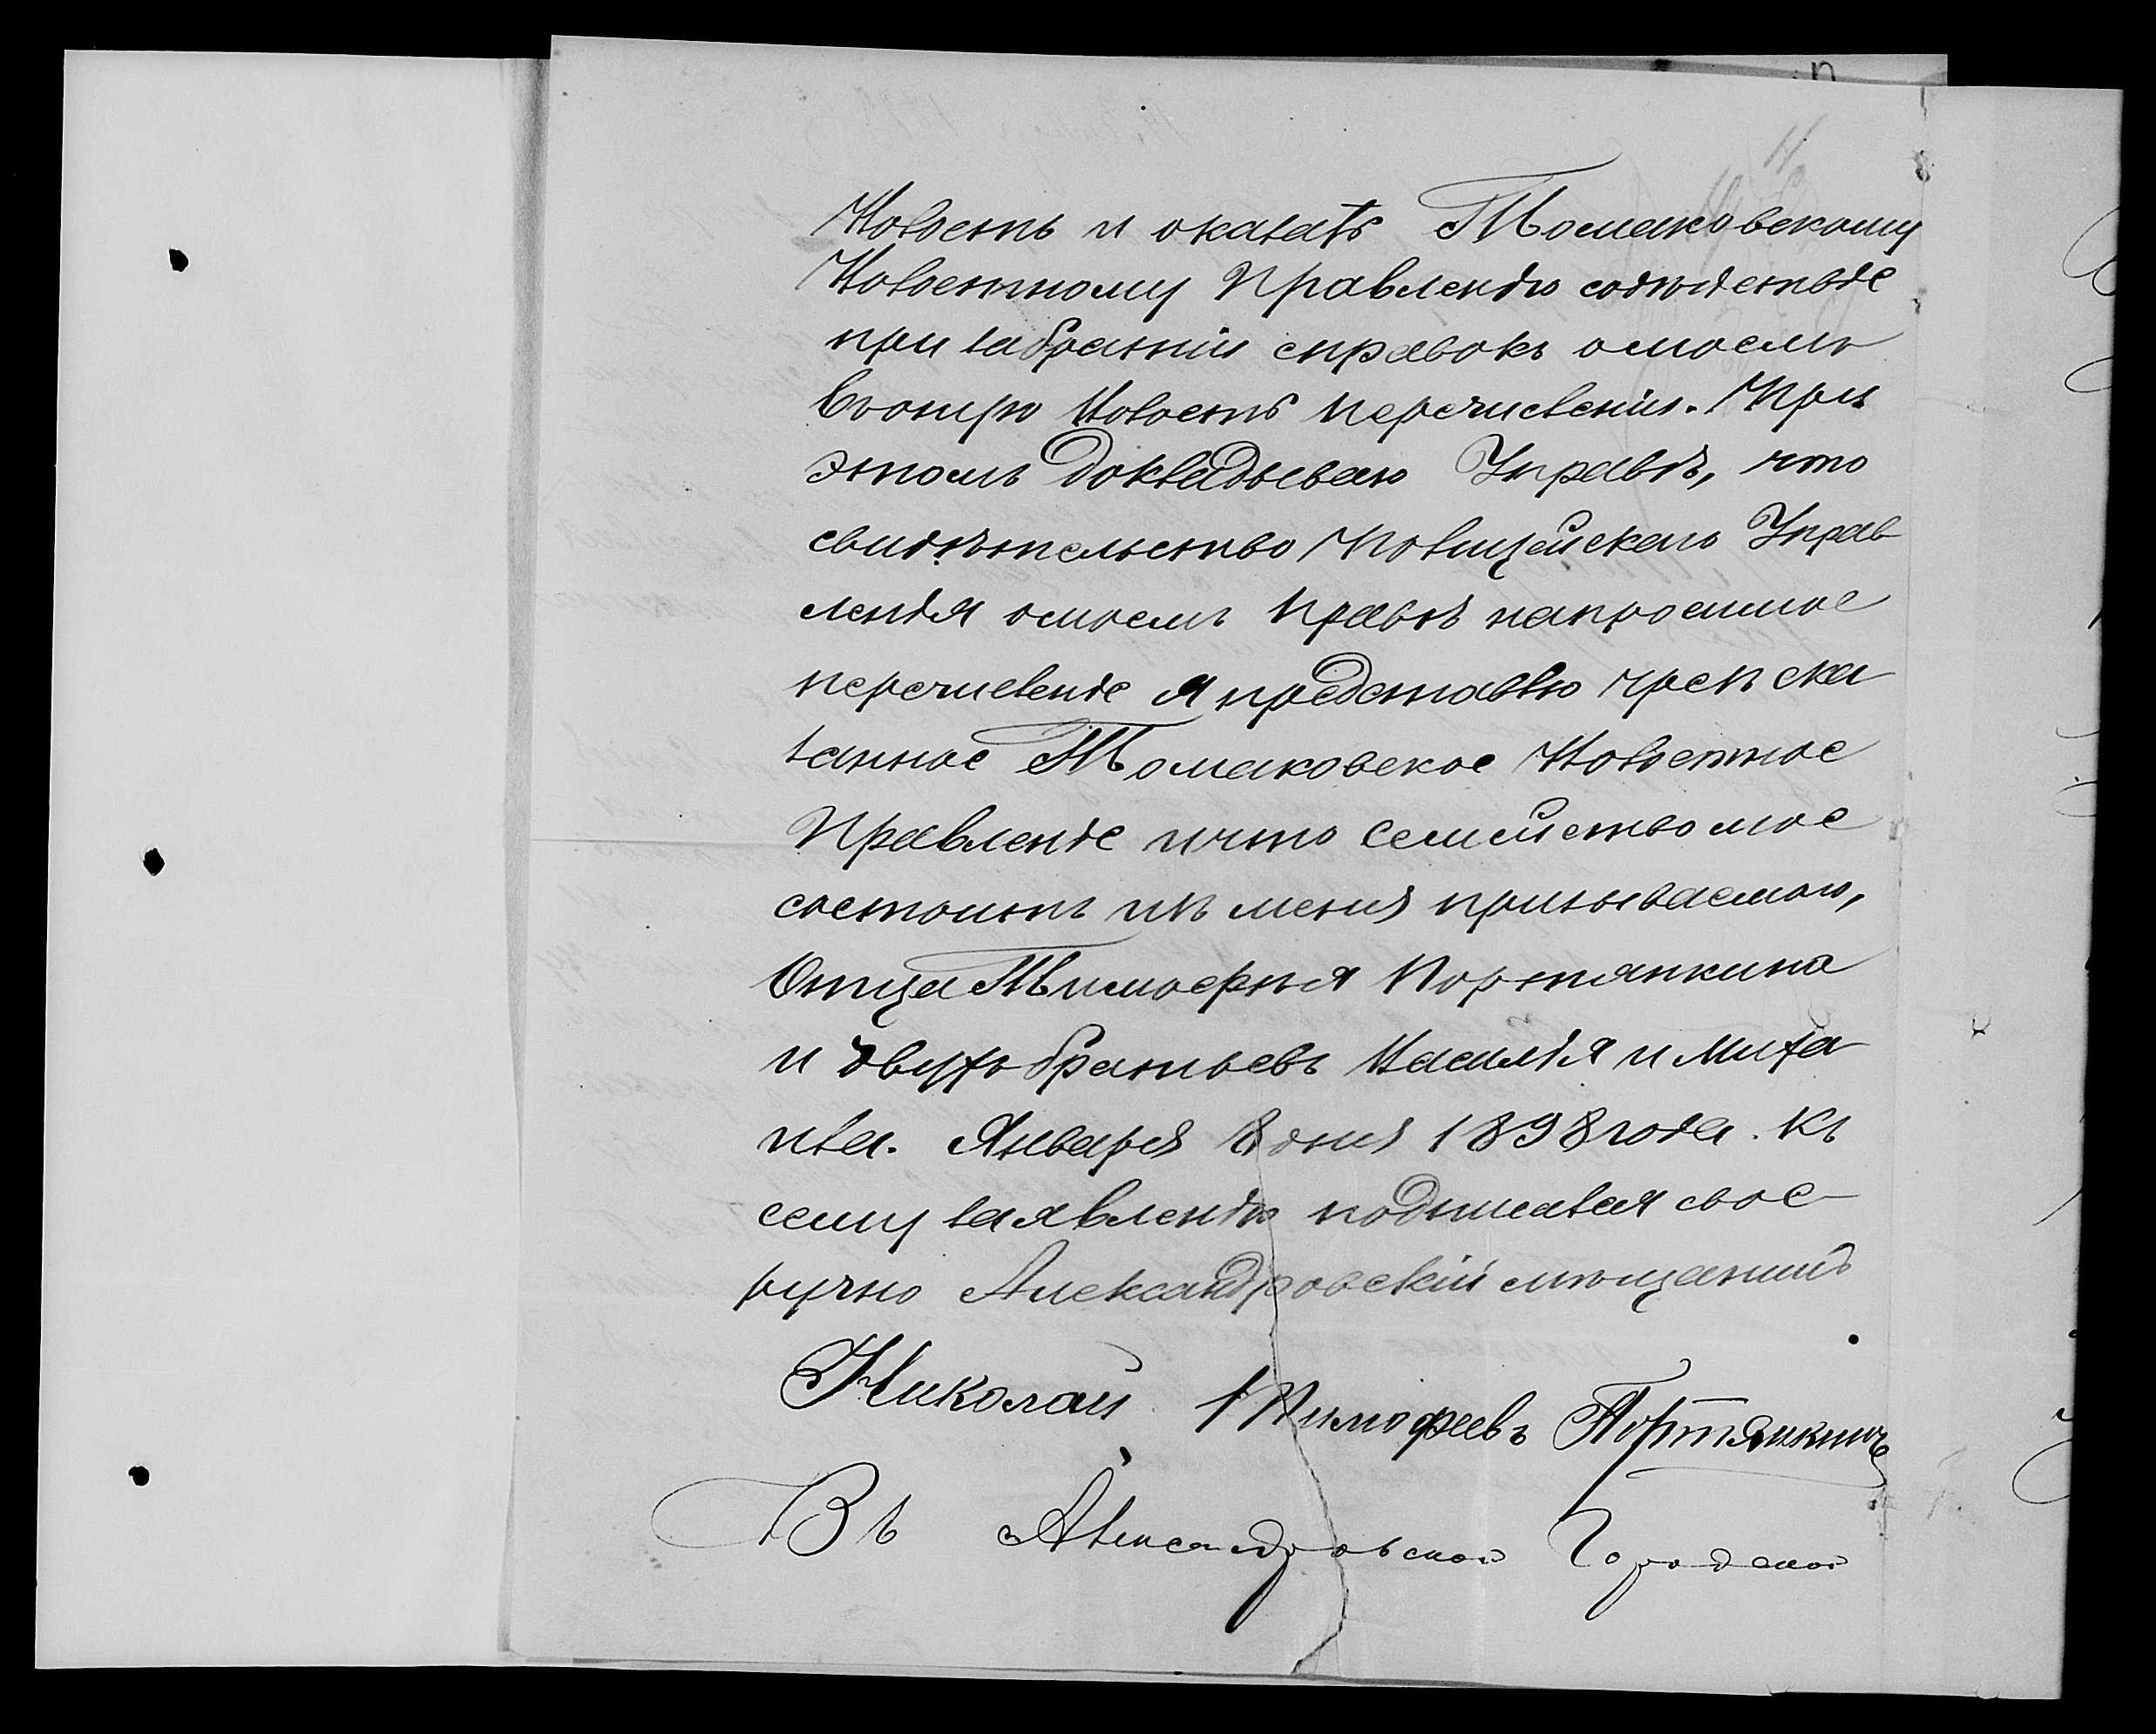 Волость и оказать Томаковскому
Волостному Правленію содѣйствіе
при забраніи справокъ омоемъ
Въоную Волость перечисленіи. При
этомъ докладываю Управѣ, что
свидѣтельство Полицейскаго Управ
ленія омоемъ правѣ напросимое
перечисленіе я представлю чрезъ ска
занное Томаковское Волостное
Правленіе ичто Семейство мое
состоитъ изъ меня призываемаго,
Отца Тимофея Портянкина
и двухъ братьевъ Василія и Миха
ила. Января 8 дня 1898 года. Къ
сему заявленію подписался свое
ручно Александровскій мѣщанинъ
Николай Тимофеевъ Портянкинъ
Въ Александровской Городской